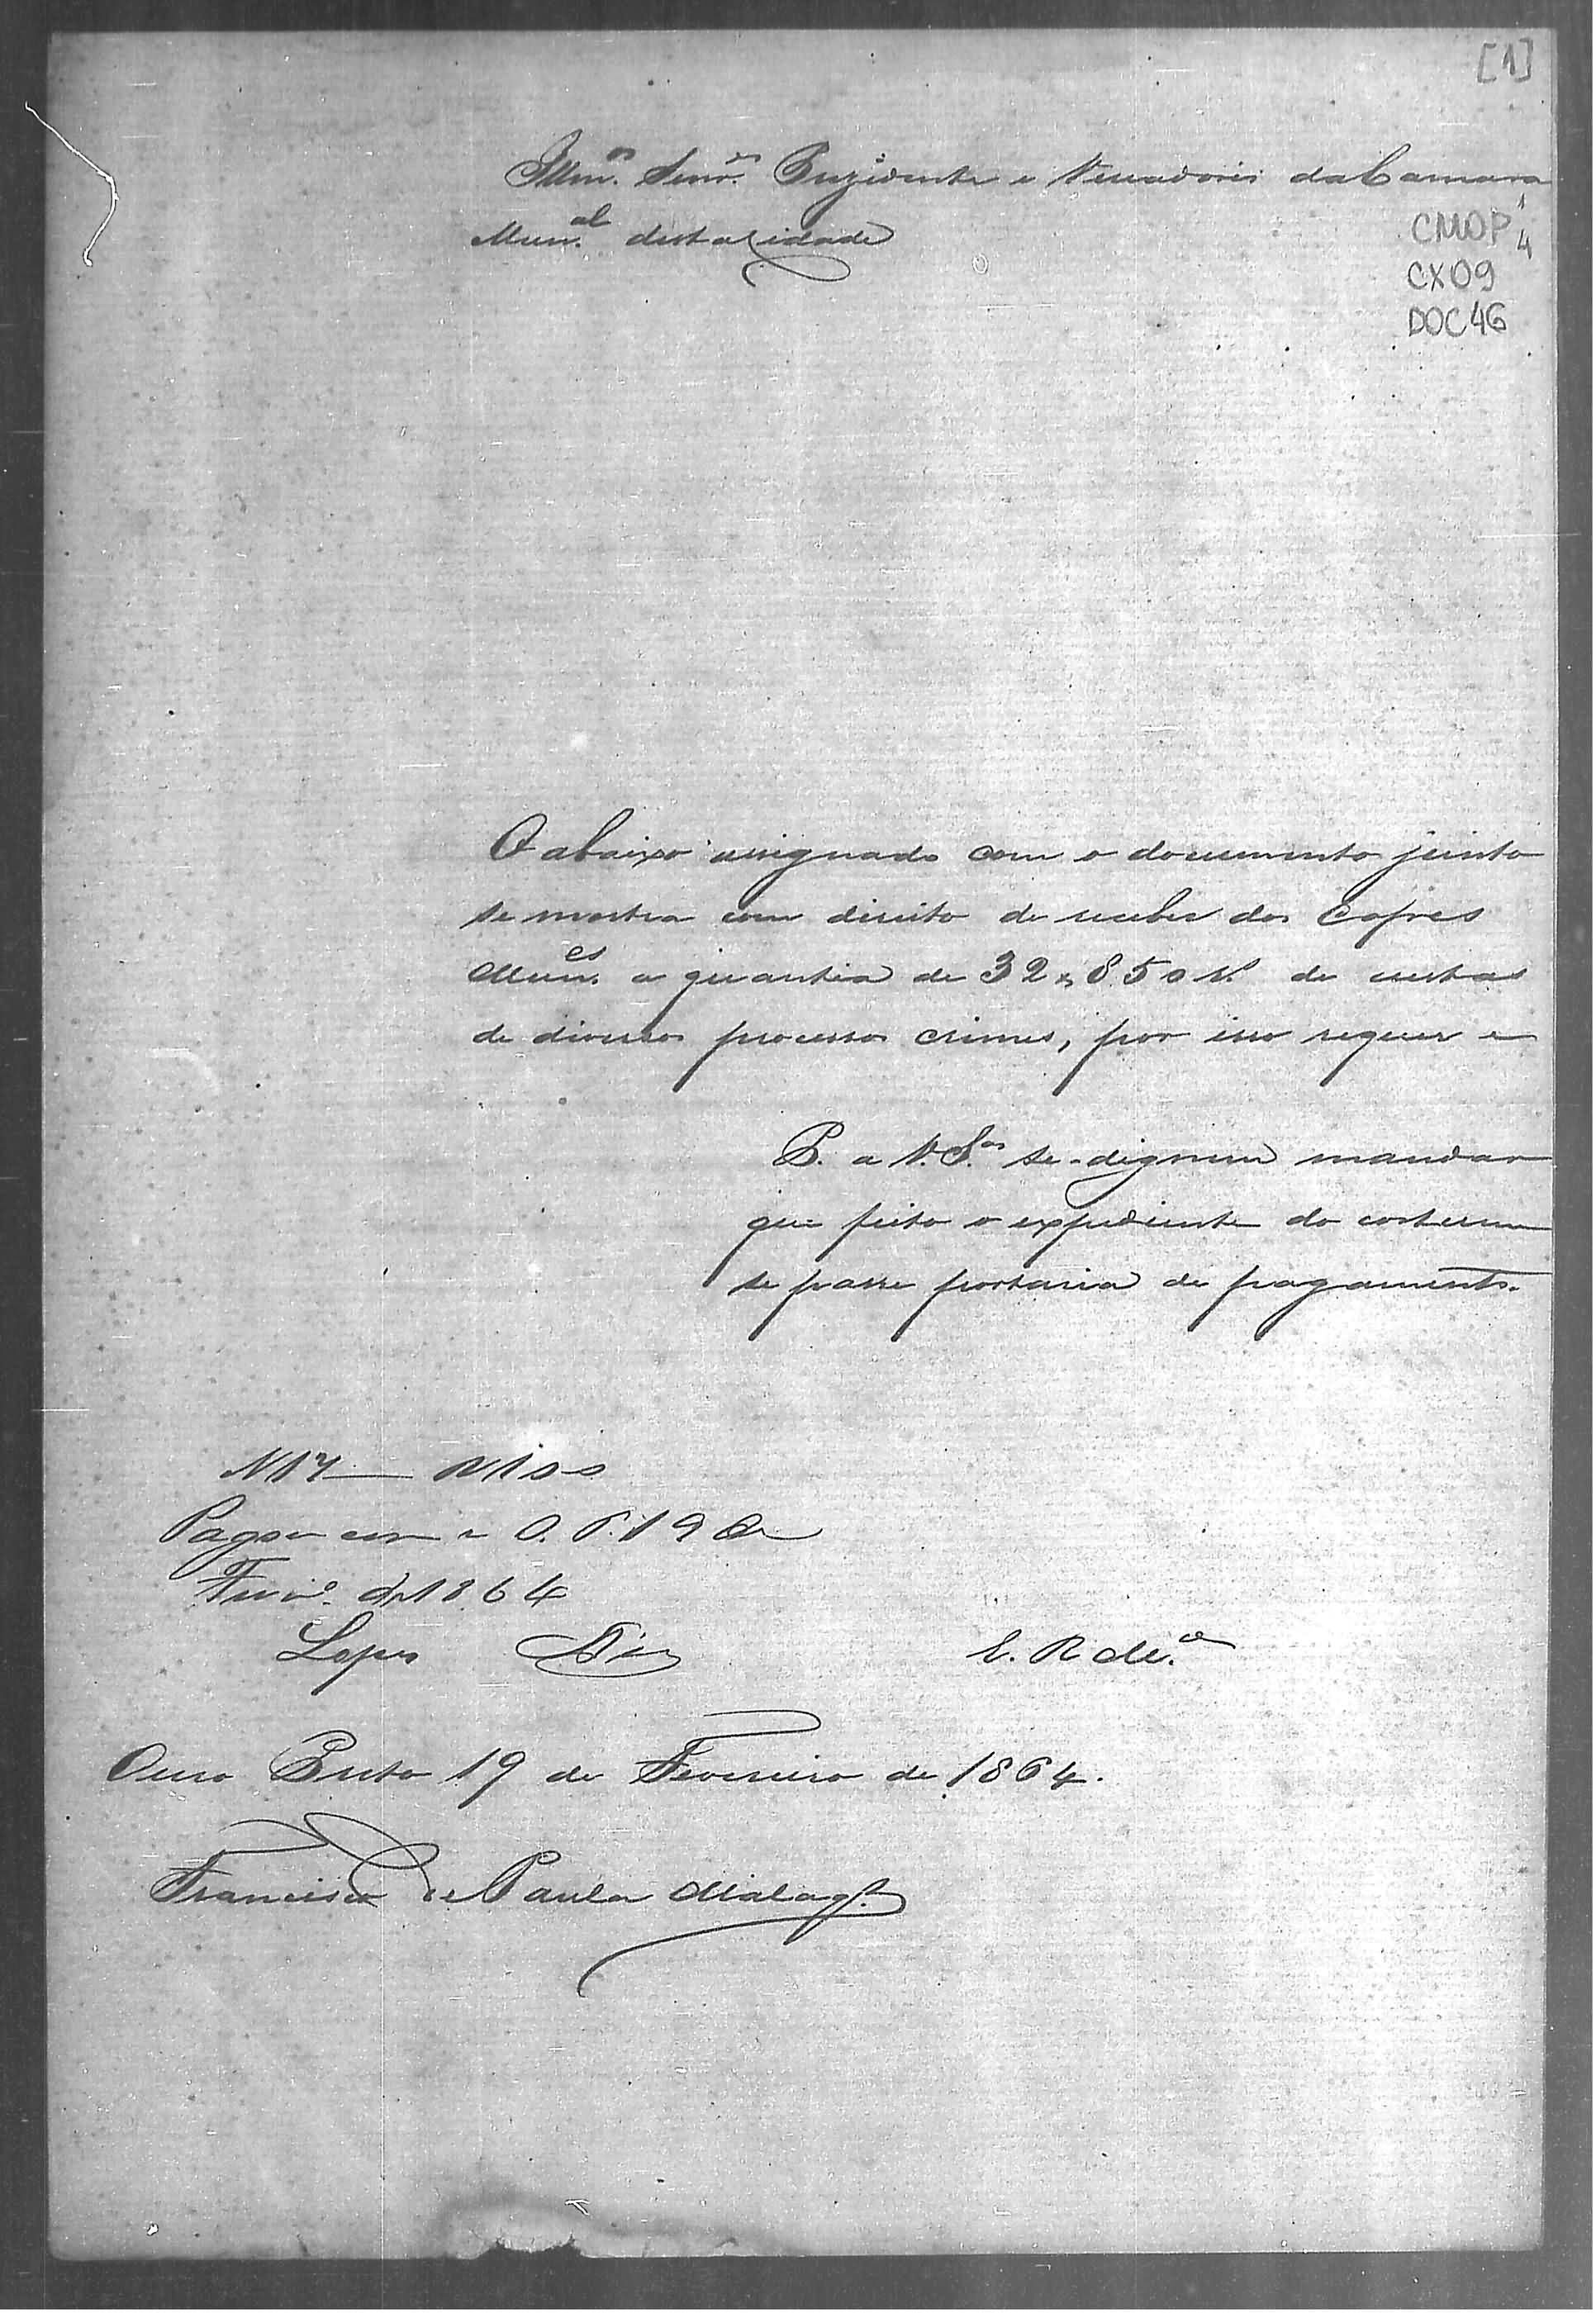 [1]
Illm.os Senr.es Prezidente e Vereadores da Camara
Mun.al desta Cidade
CMOP 1/4
CX09
DOC 46
O abaixo assignado com o documento junto
se mostra com direito de receber dos Cofres
Mun.es a quantia de 32$850 rs. de custas
de diversos processos crimes, por isso requer e
P. a V. S.as se dignem mandar
que feito o expediente do costume
se passe portaria de pagamento.
N 17 — R 100
Pagou
O. P. 19 de
Fevr.o de 1864
Lopes
E. R. M.ce
Ouro Preto 19 de Fevereiro de 1864.
Francisco de Paula